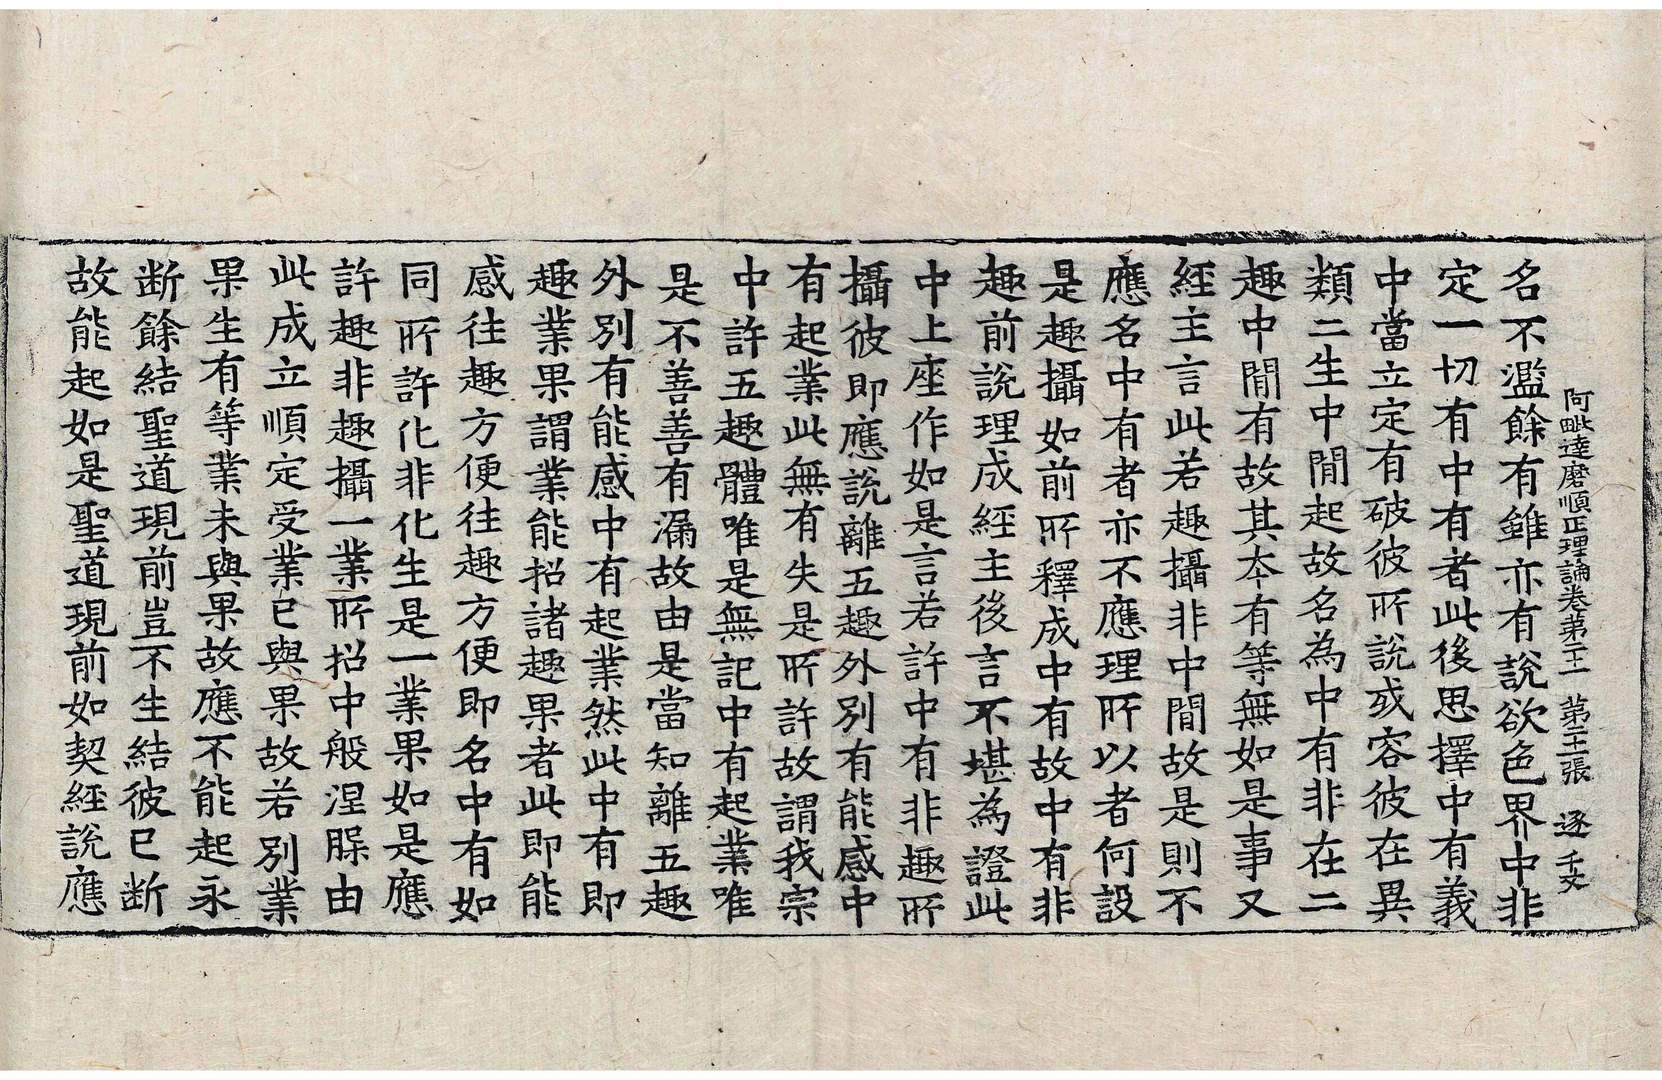 阿毗達磨順正理論卷第二十一 第二十張 逐 千文
名不濫餘有雖亦有說欲色界中非
定一切有中有者此後思擇中有義
中當立定有破彼所說或容彼在異
類二生中閒起故名為中有非在二
趣中閒有故其本有等無如是事又
經主言此若趣攝非中間故是則不
應名中有者亦不應理所以者何設
是趣攝如前所釋成中有故中有非
趣前說理成經主後言不堪為證此
中上座作如是言若許中有非趣所
攝彼即應說離五趣外別有能感中
有起業此無有失是所許故謂我宗
中許五趣體唯是無記中有起業唯
是不善善有漏故由是當知離五趣
外別有能感中有起業然此中有即
趣業果謂業能招諸趣果者此即能
感往趣方便往趣方便即名中有如
同所許化非化生是一業果如是應
許趣非趣攝一業所招中般涅槃由
此成立順定受業已與果故若別業
果生有等業未與果故應不能起永
断餘結聖道現前豈不生結彼已断
故能起如是聖道現前如契經說應